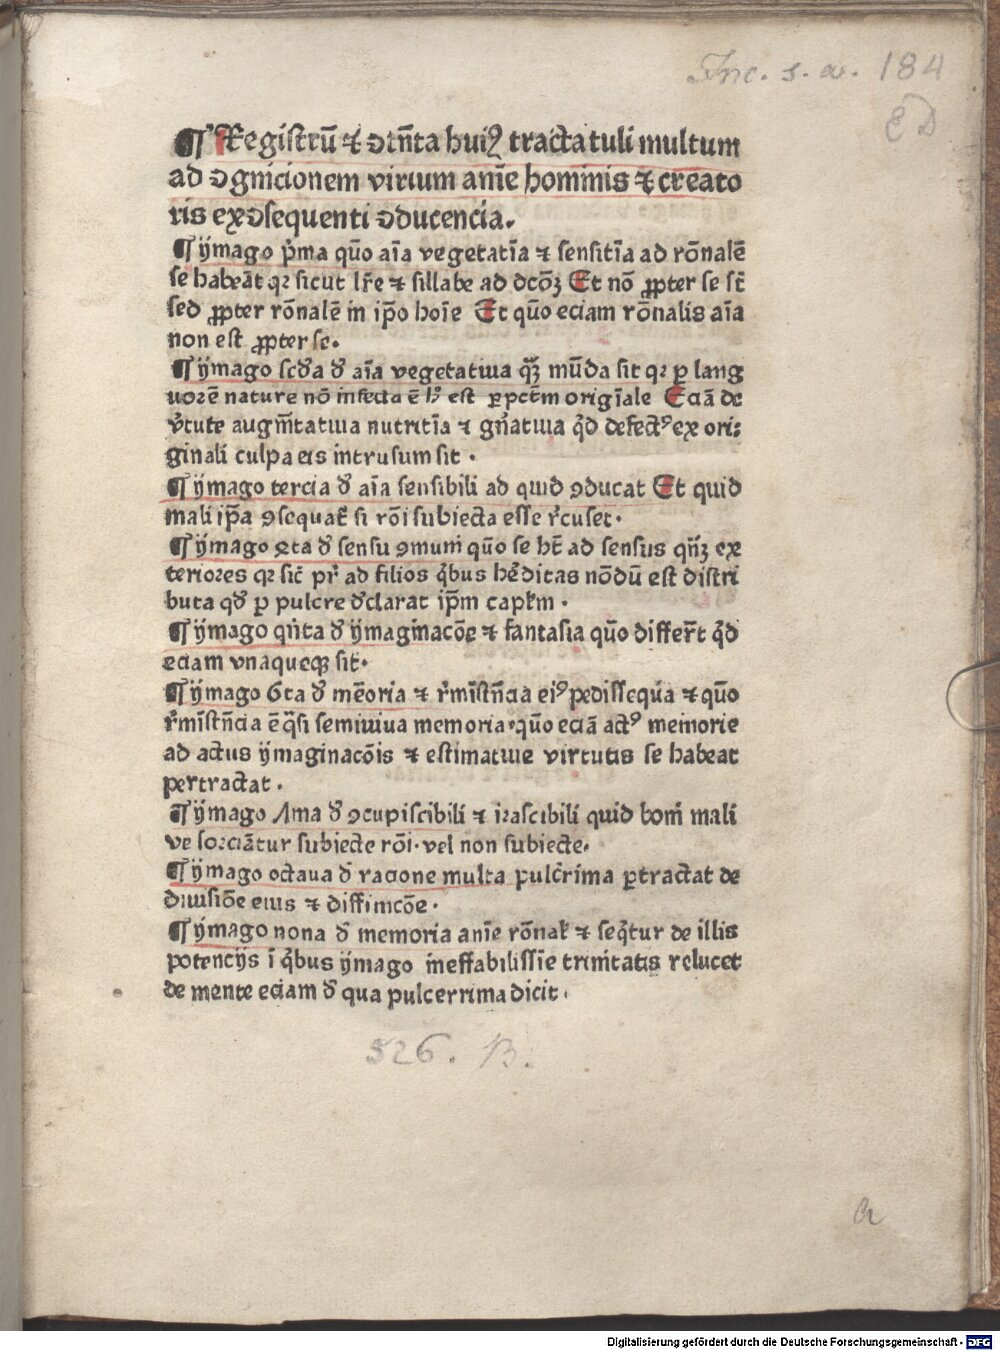 Inc. s. a. 184
ED
¶ Registrū ⁊ ↄtn̄ta huiꝰ tractatuli multum
ad ↄgnicionem virium anīe hominis ⁊ creato
ris ex ↄsequenti ↄducencia.
¶ ÿmago p̄ma quō aīa vegetatīa ⁊ sensitīa ad rōnalē
se habeāt qꝛ sicut lr̄e ⁊ sillabe ad dcōꝫ Et nō ꝓpter se st̄
sed ꝓpter rōnalē in ip̄o hoīe Et quō eciam rōnalis aīa
non est ꝓpter se.
¶ ÿmago scd̓a d̓ aīa vegetatiua qꝫ mūda sit qꝛ ꝑ lang
uorē nature nō infecta ē lꝫ est ꝑ pctm̄ origīale Eciā de
v̓tute augm̄tatiua nutritīa ⁊ gn̓atiua q̇d defectꝰ ex ori⸗
ginali culpa eis intrusum sit .
¶ ÿmago tercia d̓ aīa sensibili ad quid ꝯducat Et quid
mali ip̄a ꝯsequat̄ si rōi subiecta esse r̓cuset.
¶ ÿmago 4ta d̓ sensu ꝯmuni quō se hꝫ ad sensus qn̄ꝫ ex
teriores qꝛ sic̄ pr̄ ad filios q̇bus he̓ditas nōdū est distri
buta qd̓ ꝑ pulcre d̓clarat ip̄m capl̄m .
¶ ÿmago qn̄ta d̓ ÿmaginacōe ⁊ fantasia quō differt̄ q̇d
eciam vnaqueqꝫ sit.
¶ ÿmago 6ta d̓ mēoria ⁊ r̓mīstn̄cia eiꝰ pedissequa ⁊ quō
r̓mīstn̄cia ē q̇si semiuiua memoria. quō eciā actꝰ memorie
ad actus ÿmaginacōis ⁊ estimatiue virtutis se habeat
pertractat .
¶ ÿmago Λma d̓ ꝯcupiscibili ⁊ irascibili quid boni mali
ve sorciāntur subiecte rōi. vel non subiecte.
¶ ÿmago octaua d̓ racione multa pulc̓rima ꝑtractat de
diuisiōe eius ⁊ diffinicōe .
¶ ÿmago nona d̓ memoria anīe rōnal̄ ⁊ seq̇tur de illis
potencijs ī q̇bus ÿmago ineffabilissīe trinitatis relucet
de mente eciam d̓ qua pulcerrima dicit .
526. B.
a
Digitalisierung gefördert durch die Deutsche Forschungsgemeinschaft - DFG